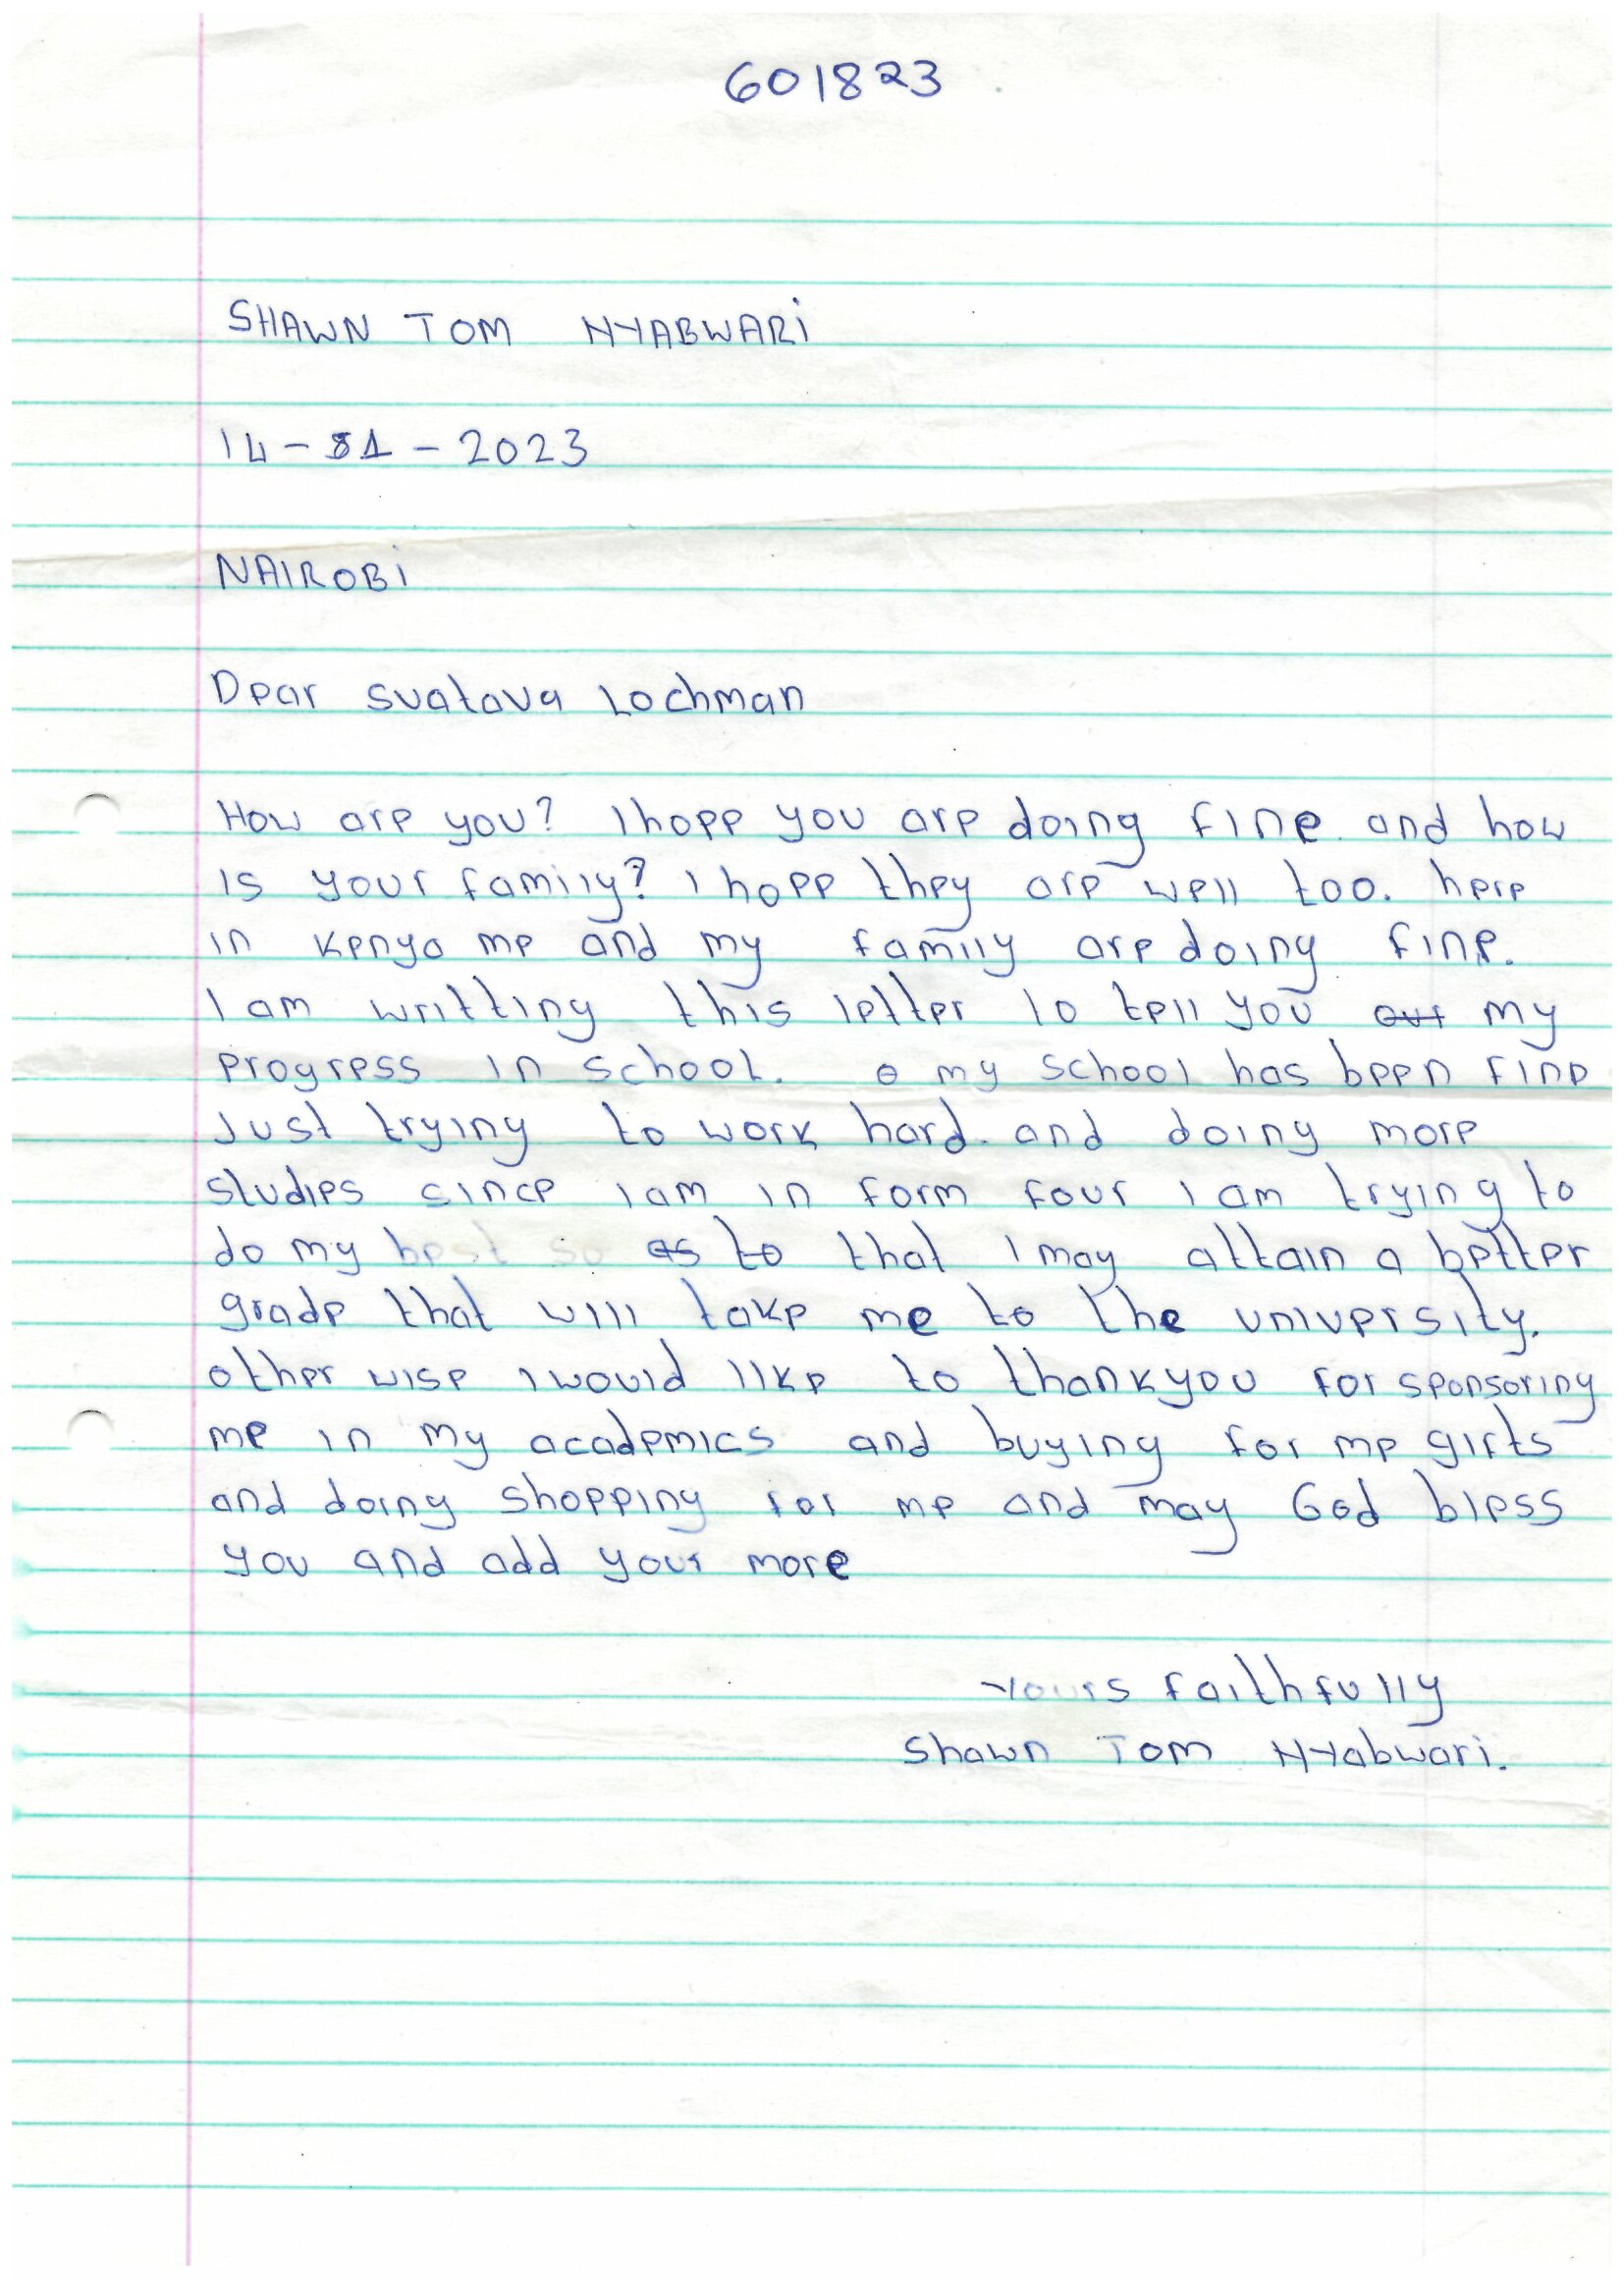 601823
SHAWN TOM NYABWARI
14 - 81 - 2023
NAIROBI
Dear Svatava Lochman
How are you? I hope you are doing fine and how
is your family? I hope they are well too. here
in Kenya me and my family are doing fine.
I am writting this letter to tell you my
progress in school. my school has been fine
Just trying to work hard and doing more
studies since I am in form four I am trying to
do my best so that I may attain a better
grade that will take me to the university.
other wise I would like to thankyou for sponsoring
me in my academics and buying for me gifts
and doing shopping for me and may God bless
you and add your more
Yours faithfully
Shawn Tom Nyabwari.